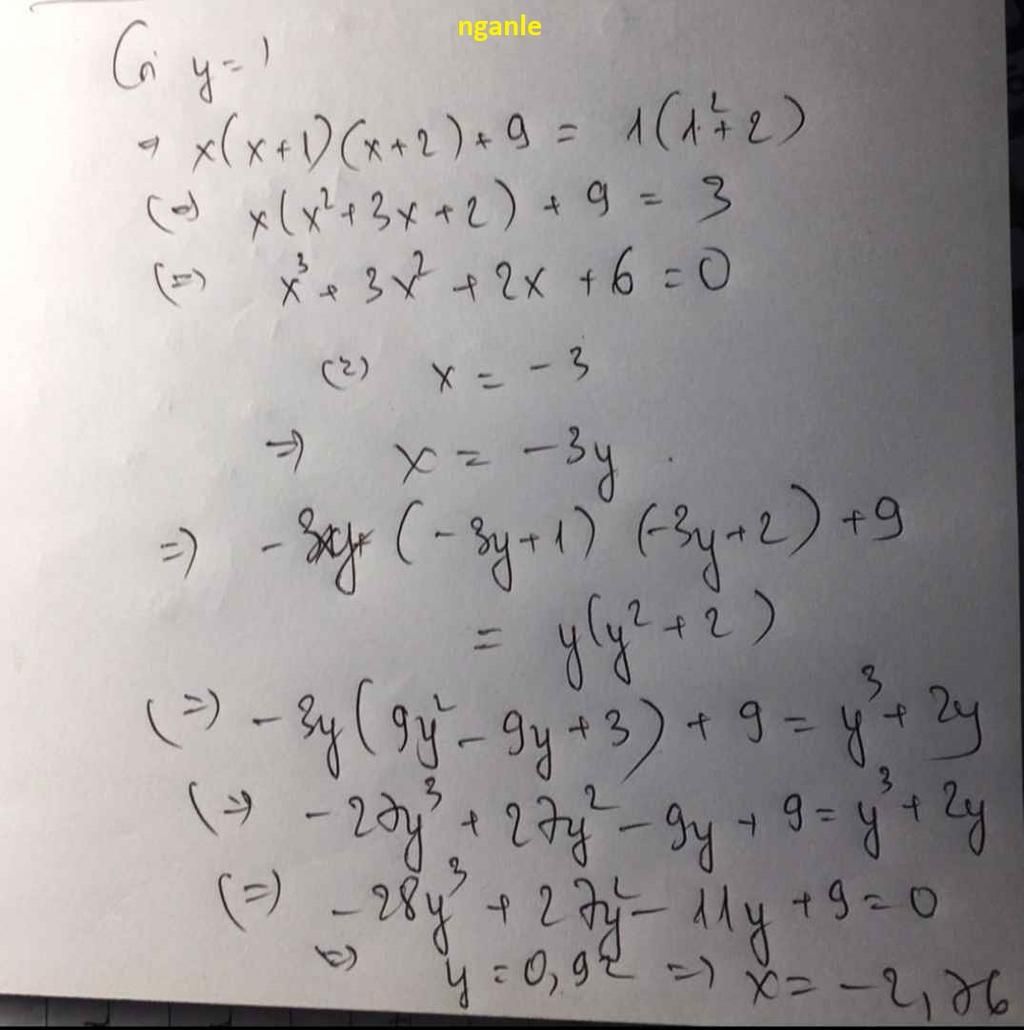 nganle
Cỉ y = 1
⇒ x(x+1)(x+2) + 9 = 1(1² + 2)
(⇒) x(x²+3x+2) + 9 = 3
(=) x³ + 3x² + 2x + 6 = 0
(2) x = -3
=) x = -3y.
=) - 3y (-3y+1) (-3y+2) + 9
= y(y² + 2)
(=) - 3y(9y² - 9y + 3) + 9 = y³ + 2y
(=) - 27y³ + 27y² - 9y + 9 = y³ + 2y
(=) - 28y³ + 27y² - 11y + 9 = 0
=) y = 0,92 =) x = -2,76